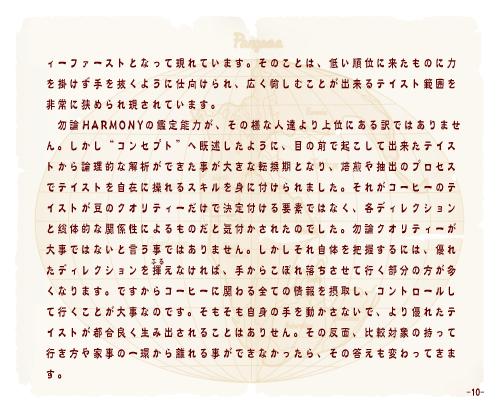 Pangaea
ィーファーストとなって現れています。そのことは、低い順位に来たものに力
を掛けず手を抜くように仕向けられ、広く愉しむことが出来るテイスト範囲を
非常に狭められ現されています。
勿論HARMONYの鑑定能力が、その様な人達より上位にある訳ではありませ
ん。しかし“コンセプト”へ既述したように、目の前で起こして出来たテイス
トから論理的な解析ができた事が大きな転換期となり、焙煎や抽出のプロセス
でテイストを自在に操れるスキルを身に付けられました。それがコーヒーのテ
イストが豆のクオリティーだけで決定付ける要素ではなく、各ディレクション
と総体的な関係性によるものだと気付かされたのでした。勿論クオリティーが
大事ではないと言う事ではありません。しかしそれ自体を把握するには、優れ
たディレクションを揮えなければ、手からこぼれ落ちさせて行く部分の方が多
くなります。ですからコーヒーに関わる全ての情報を摂取し、コントロールし
て行くことが大事なのです。そもそも自身の手を動かさないで、より優れたテ
イストが都合良く生み出されることはありせん。その反面、比較対象の持って
行き方や家事の一環から離れる事ができなかったら、その答えも変わってきま
す。
-10-